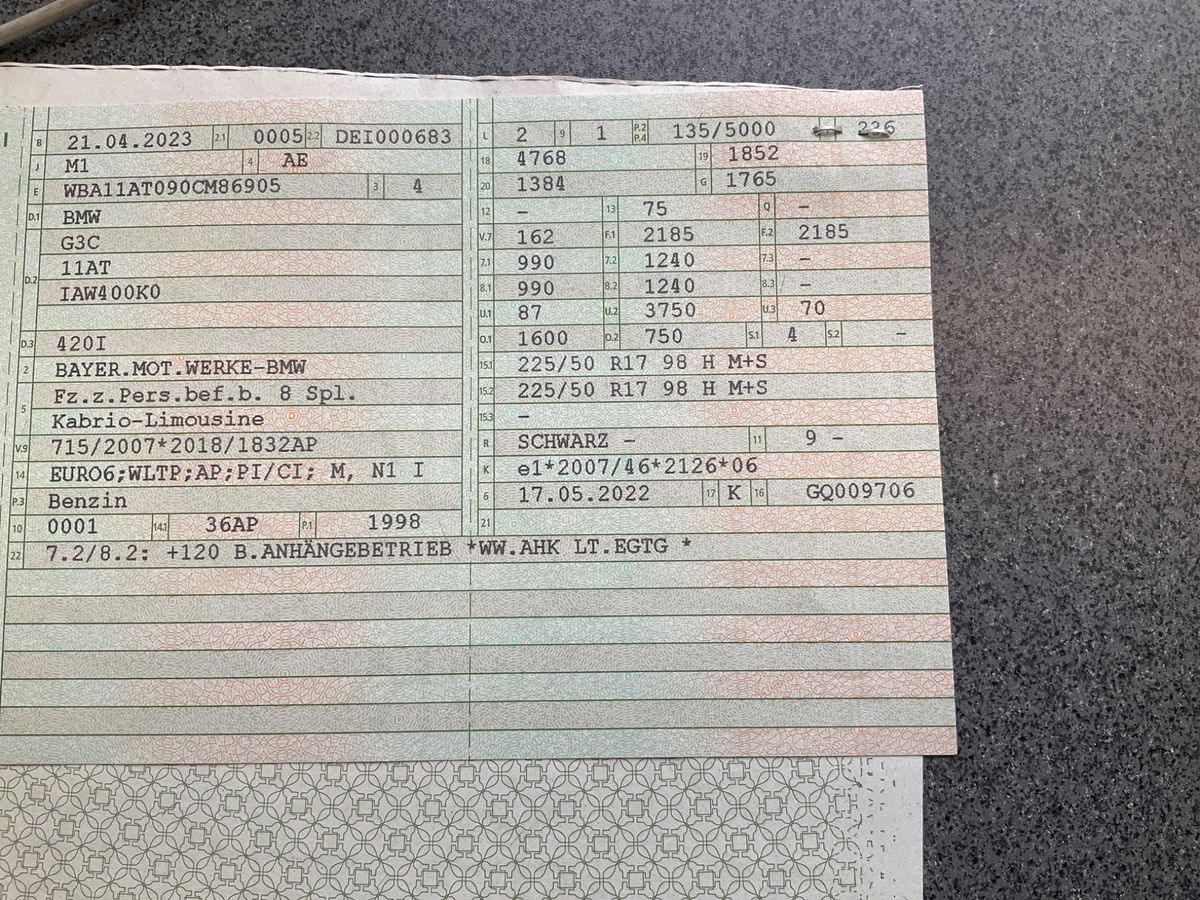 B 21.04.2023 2.1 0005 2.2 DEI000683
J M1 4 AE
E WBA11AT090CM86905 3 4
D.1 BMW
D.2 G3C
11AT
IAW400K0
D.3 420I
2 BAYER.MOT.WERKE-BMW
5 Fz.z.Pers.bef.b. 8 Spl.
Kabrio-Limousine
V.9 715/2007*2018/1832AP
14 EURO6;WLTP;AP;PI/CI; M, N1 I
P.3 Benzin
10 0001 14.1 36AP P.1 1998
L 2 9 1 P.2 P.4 135/5000 226
18 4768 19 1852
20 1384 G 1765
12 - 13 75 Q -
V.7 162 F.1 2185 F.2 2185
7.1 990 7.2 1240 7.3 -
8.1 990 8.2 1240 8.3 -
U.1 87 U.2 3750 U.3 70
O.1 1600 O.2 750 S.1 4 S.2 -
15.1 225/50 R17 98 H M+S
15.2 225/50 R17 98 H M+S
15.3 -
R SCHWARZ - 11 9 -
K e1*2007/46*2126*06
6 17.05.2022 17 K 16 GQ009706
21
22 7.2/8.2: +120 B.ANHÄNGEBETRIEB *WW.AHK LT.EGTG *